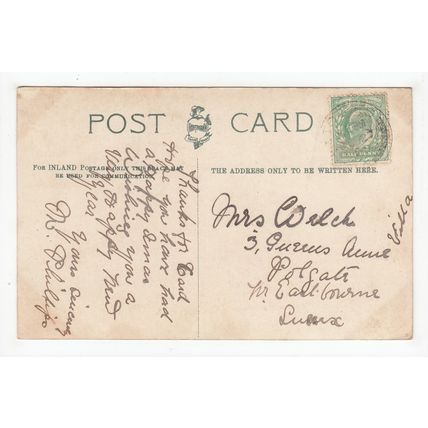 POST CARD
FOR INLAND POSTAGE ONLY THIS SPACE MAY
BE USED FOR COMMUNICATION
THE ADDRESS ONLY TO BE WRITTEN HERE.
HALF PENNY
Thanks for Card
Hope you have had
a Happy Xmas
Wishing you a
Very Happy New
Year
Yours sincerely
M.
Mrs Welch
3, Queens Anne
Villa
Polgate
Nr Eastbourne
Sussex